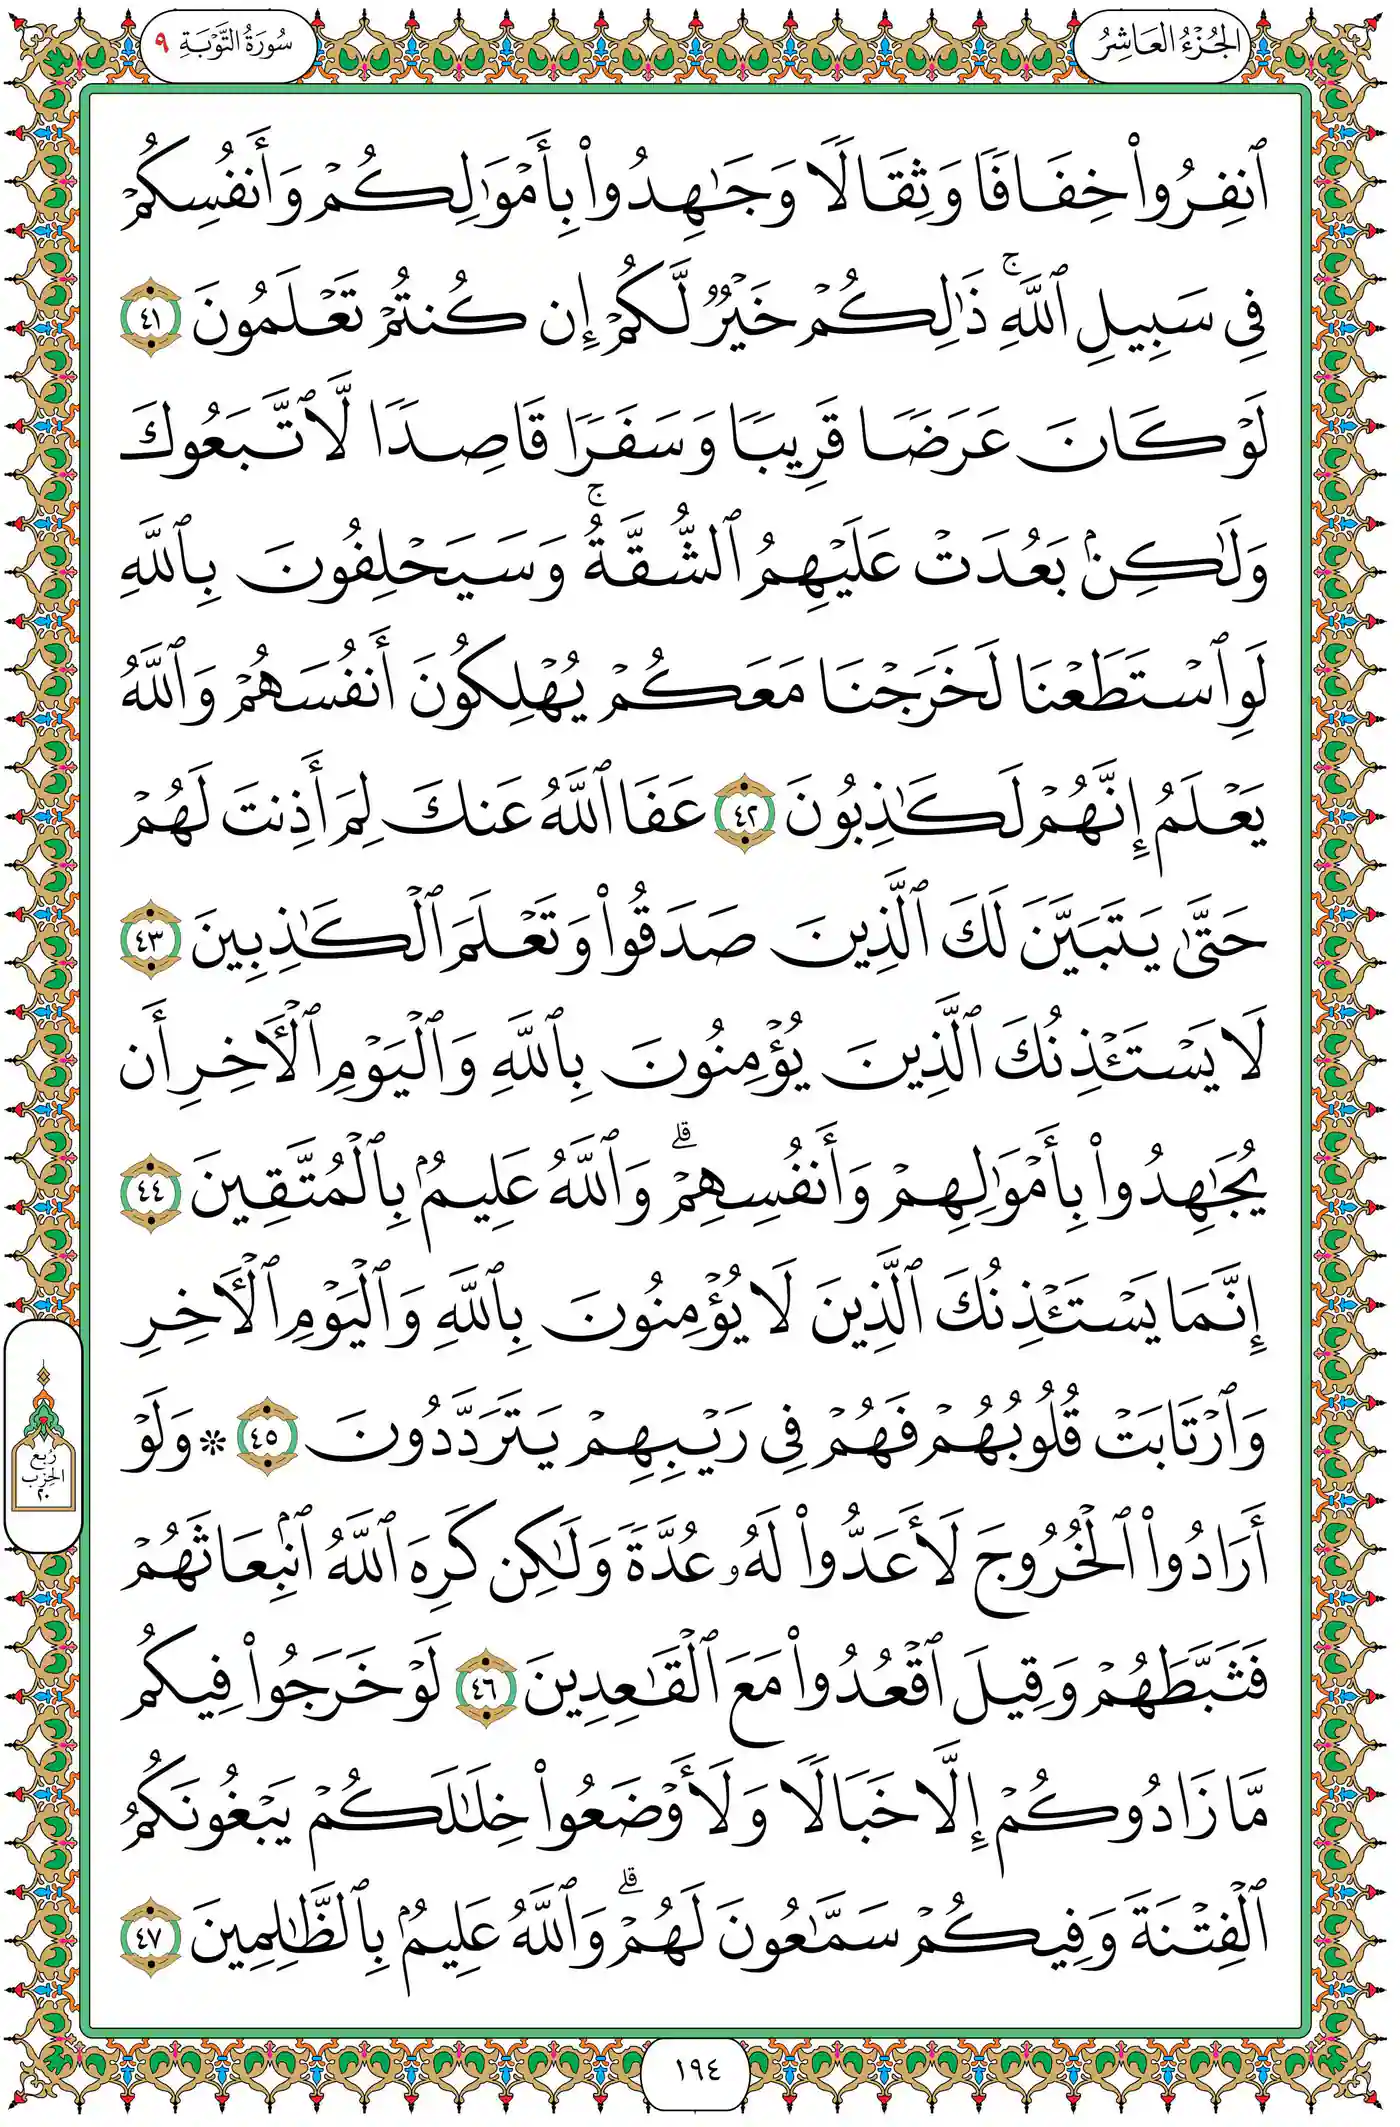 الجُزْءُ العَاشِرُ
سُورَةُ التَّوْبَةِ ٩
ٱنفِرُوا۟ خِفَافًا وَثِقَالًا وَجَٰهِدُوا۟ بِأَمْوَٰلِكُمْ وَأَنفُسِكُمْ
فِى سَبِيلِ ٱللَّهِ ۚ ذَٰلِكُمْ خَيْرٌ لَّكُمْ إِن كُنتُمْ تَعْلَمُونَ ٤١
لَوْ كَانَ عَرَضًا قَرِيبًا وَسَفَرًا قَاصِدًا لَّٱتَّبَعُوكَ
وَلَٰكِنۢ بَعُدَتْ عَلَيْهِمُ ٱلشُّقَّةُ ۚ وَسَيَحْلِفُونَ بِٱللَّهِ
لَوِ ٱسْتَطَعْنَا لَخَرَجْنَا مَعَكُمْ يُهْلِكُونَ أَنفُسَهُمْ وَٱللَّهُ
يَعْلَمُ إِنَّهُمْ لَكَٰذِبُونَ ٤٢ عَفَا ٱللَّهُ عَنكَ لِمَ أَذِنتَ لَهُمْ
حَتَّىٰ يَتَبَيَّنَ لَكَ ٱلَّذِينَ صَدَقُوا۟ وَتَعْلَمَ ٱلْكَٰذِبِينَ ٤٣
لَا يَسْتَـْٔذِنُكَ ٱلَّذِينَ يُؤْمِنُونَ بِٱللَّهِ وَٱلْيَوْمِ ٱلْـَٔاخِرِ أَن
يُجَٰهِدُوا۟ بِأَمْوَٰلِهِمْ وَأَنفُسِهِمْ ۗ وَٱللَّهُ عَلِيمٌۢ بِٱلْمُتَّقِينَ ٤٤
إِنَّمَا يَسْتَـْٔذِنُكَ ٱلَّذِينَ لَا يُؤْمِنُونَ بِٱللَّهِ وَٱلْيَوْمِ ٱلْـَٔاخِرِ
وَٱرْتَابَتْ قُلُوبُهُمْ فَهُمْ فِى رَيْبِهِمْ يَتَرَدَّدُونَ ٤٥ ۞ وَلَوْ
أَرَادُوا۟ ٱلْخُرُوجَ لَأَعَدُّوا۟ لَهُۥ عُدَّةً وَلَٰكِن كَرِهَ ٱللَّهُ ٱنۢبِعَاثَهُمْ
فَثَبَّطَهُمْ وَقِيلَ ٱقْعُدُوا۟ مَعَ ٱلْقَٰعِدِينَ ٤٦ لَوْ خَرَجُوا۟ فِيكُم
مَّا زَادُوكُمْ إِلَّا خَبَالًا وَلَأَوْضَعُوا۟ خِلَٰلَكُمْ يَبْغُونَكُمُ
ٱلْفِتْنَةَ وَفِيكُمْ سَمَّٰعُونَ لَهُمْ ۗ وَٱللَّهُ عَلِيمٌۢ بِٱلظَّٰلِمِينَ ٤٧
رُبع
الحِزب
٢٠
١٩٤